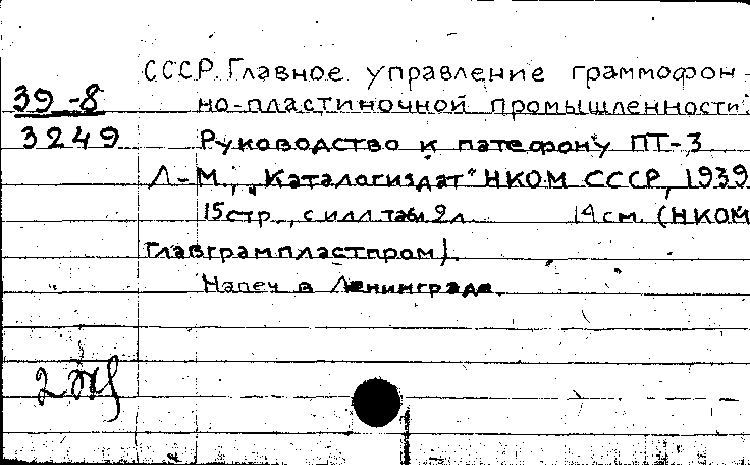 СССР. Главное управление граммофон-
39-8 но-пластиночной промышленности.
3249 Руководство к патефону ПТ-3
Л-М., „Каталогиздат" НКОМ СССР, 1939
15 стр., с илл. табл. 2 л. 14 см. (НКОМ
Главгрампластпром).
Напеч. в Ленинграде.